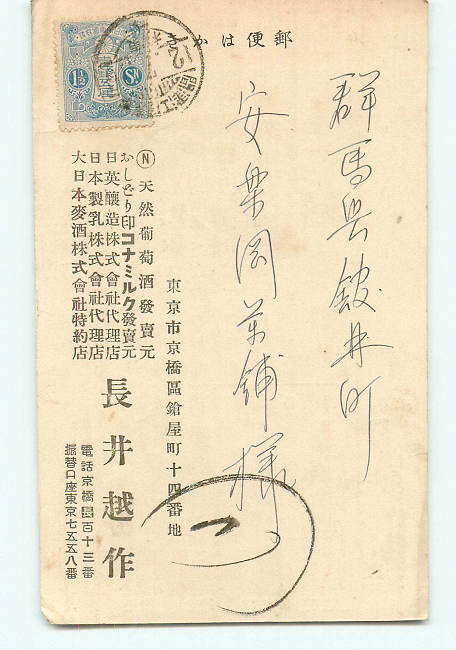 郵便はかき
群馬県館林町
安楽岡舗様
東京市京橋區鎗屋町十四番地
Ⓝ 天然葡萄酒發賣元
おしどり印コナミルク發賣元
日英釀造株式會社代理店
日本製乳株式會社代理店
大日本麥酒株式會社特約店
長井越作
電話京橋百十三番
振替口座東京七五五八番
1½ Sn
12